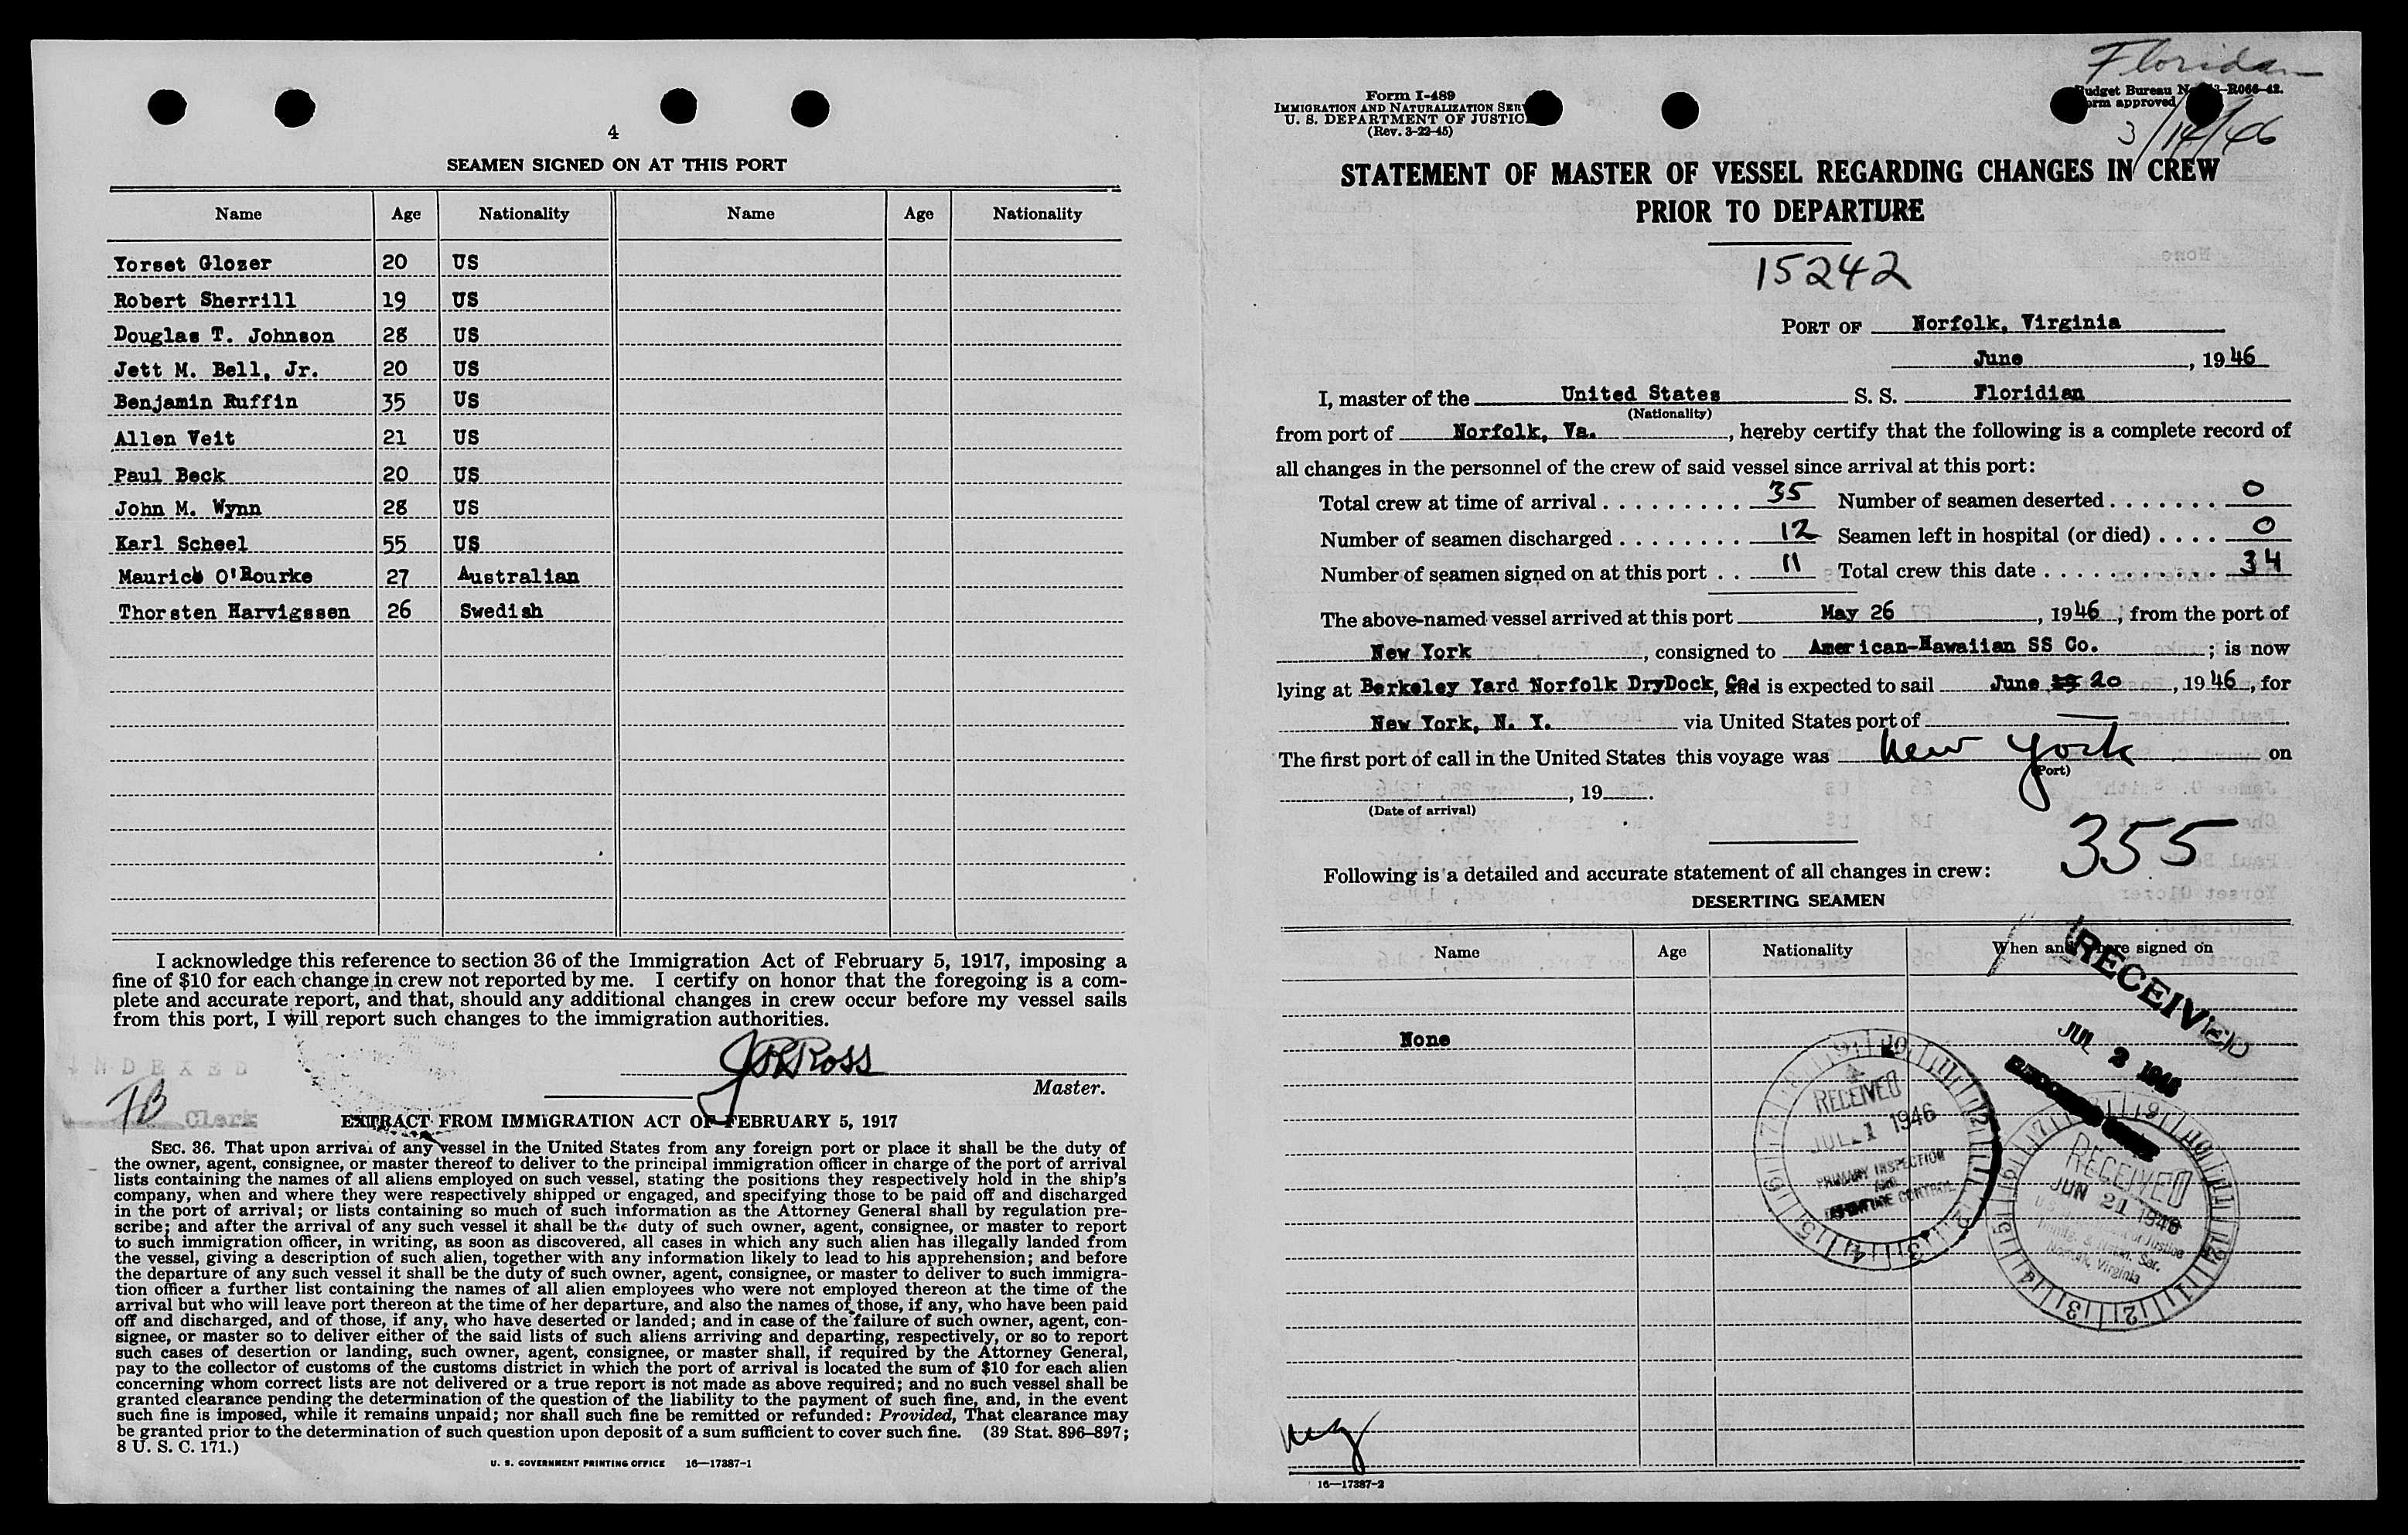 4
SEAMEN SIGNED ON AT THIS PORT
Name Age Nationality Name Age Nationality
Yorset Glozer 20 US
Robert Sherrill 19 US
Douglas T. Johnson 28 US
Jett M. Bell, Jr. 20 US
Benjamin Ruffin 35 US
Allen Veit 21 US
Paul Beck 20 US
John M. Wynn 28 US
Karl Scheel 55 US
Maurice O'Rourke 27 Australian
Thorsten Harvigssen 26 Swedish
I acknowledge this reference to section 36 of the Immigration Act of February 5, 1917, imposing a
fine of $10 for each change in crew not reported by me. I certify on honor that the foregoing is a com-
plete and accurate report, and that, should any additional changes in crew occur before my vessel sails
from this port, I will report such changes to the immigration authorities.
INDEXED
TB Clerk
Ross
Master.
EXTRACT FROM IMMIGRATION ACT OF FEBRUARY 5, 1917
SEC. 36. That upon arrival of any vessel in the United States from any foreign port or place it shall be the duty of
the owner, agent, consignee, or master thereof to deliver to the principal immigration officer in charge of the port of arrival
lists containing the names of all aliens employed on such vessel, stating the positions they respectively hold in the ship's
company, when and where they were respectively shipped or engaged, and specifying those to be paid off and discharged
in the port of arrival; or lists containing so much of such information as the Attorney General shall by regulation pre-
scribe; and after the arrival of any such vessel it shall be the duty of such owner, agent, consignee, or master to report
to such immigration officer, in writing, as soon as discovered, all cases in which any such alien has illegally landed from
the vessel, giving a description of such alien, together with any information likely to lead to his apprehension; and before
the departure of any such vessel it shall be the duty of such owner, agent, consignee, or master to deliver to such immigra-
tion officer a further list containing the names of all alien employees who were not employed thereon at the time of the
arrival but who will leave port thereon at the time of her departure, and also the names of those, if any, who have been paid
off and discharged, and of those, if any, who have deserted or landed; and in case of the failure of such owner, agent, con-
signee, or master so to deliver either of the said lists of such aliens arriving and departing, respectively, or so to report
such cases of desertion or landing, such owner, agent, consignee, or master shall, if required by the Attorney General,
pay to the collector of customs of the customs district in which the port of arrival is located the sum of $10 for each alien
concerning whom correct lists are not delivered or a true report is not made as above required; and no such vessel shall be
granted clearance pending the determination of the question of the liability to the payment of such fine, and, in the event
such fine is imposed, while it remains unpaid; nor shall such fine be remitted or refunded: Provided, That clearance may
be granted prior to the determination of such question upon deposit of a sum sufficient to cover such fine. (39 Stat. 896–897;
8 U. S. C. 171.)
U. S. GOVERNMENT PRINTING OFFICE 16—17387-1
Form I-489
IMMIGRATION AND NATURALIZATION
U. S. DEPARTMENT OF
(Rev. 3-22-45)
Floridan
Budget Bureau R066-42.
Form approved
3/14/46
STATEMENT OF MASTER OF VESSEL REGARDING CHANGES IN CREW
PRIOR TO DEPARTURE
15242
PORT OF Norfolk, Virginia
June, 1946
I, master of the United States S. S. Floridian
(Nationality)
from port of Norfolk, Va., hereby certify that the following is a complete record of
all changes in the personnel of the crew of said vessel since arrival at this port:
Total crew at time of arrival 35 Number of seamen deserted 0
Number of seamen discharged 12 Seamen left in hospital (or died) 0
Number of seamen signed on at this port 11 Total crew this date 34
The above-named vessel arrived at this port May 26, 1946, from the port of
New York, consigned to American-Hawaiian SS Co.; is now
lying at Berkeley Yard Norfolk DryDock, Co. and is expected to sail June 20, 1946, for
New York, N. Y. via United States port of —
The first port of call in the United States this voyage was New York on
(Port)
, 19
(Date of arrival)
355
Following is a detailed and accurate statement of all changes in crew:
DESERTING SEAMEN
Name Age Nationality When and where signed on
None
RECEIVED
JUL 2 1946
RECEIVED
JUL 1 1946
PRIMARY INSPECTION
AND
DEPARTURE CONTROL
RECEIVED
JUN 21 1946
of Justice
Immig. & Natur. Ser.
Norfolk, Virginia
16—17387-2